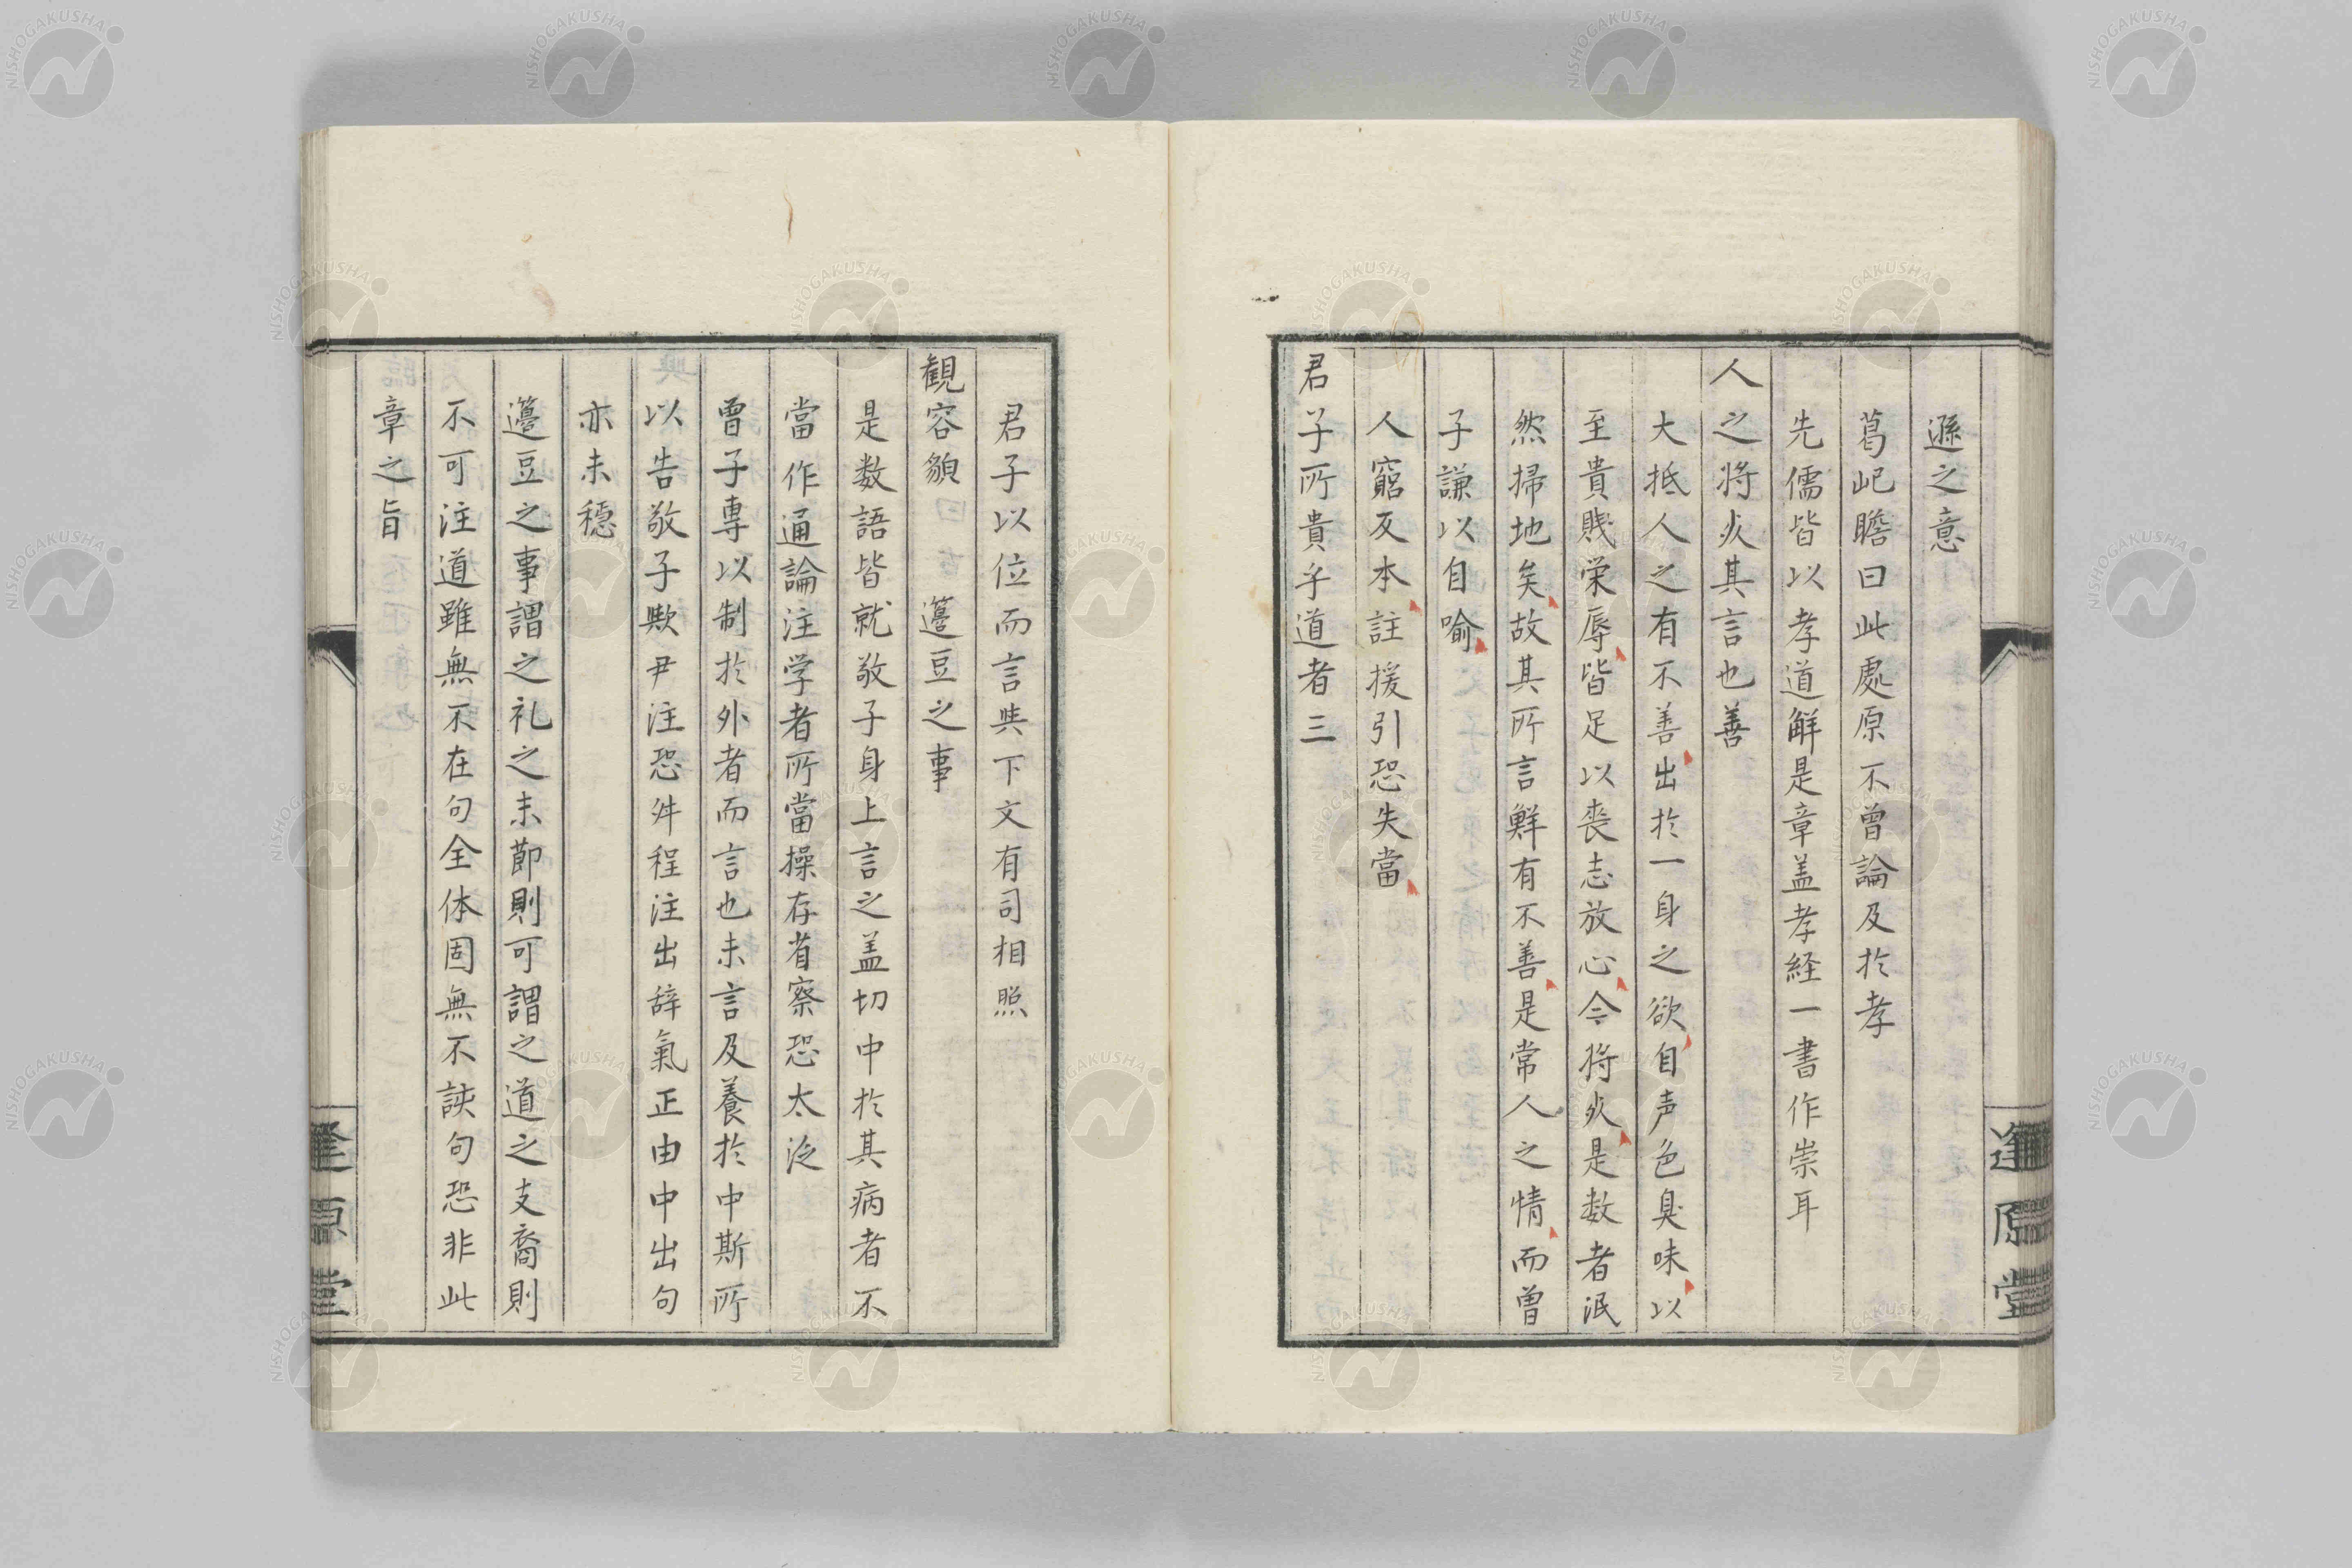 遜之意
葛屺瞻曰此處原不曾論及於孝
先儒皆以孝道解是章盖孝経一書作崇耳
人之将死其言也善
大抵人之有不善出於一身之欲自声色臭味以
至貴賎栄辱皆足以喪志放心今将死是数者泯
然掃地矣故其所言鮮有不善是常人之情而曽
子謙以自喻
人窮反本註援引恐失當
君子所貴乎道者三
逢原堂
君子以位而言与下文有司相照
観容貌 籩豆之事
是数語皆就敬子身上言之盖切中於其病者不
當作通論注学者所當操存省察恐太泛
曽子専以制於外者而言也未言及養於中斯所
以告敬子歟尹注恐舛程注出辞氣正由中出句
亦未穏
籩豆之事謂之礼之末節則可謂之道之支裔則
不可注道雖無不在句全体固無不該句恐非此
章之旨
逢原堂
NISHOGAKUSHA